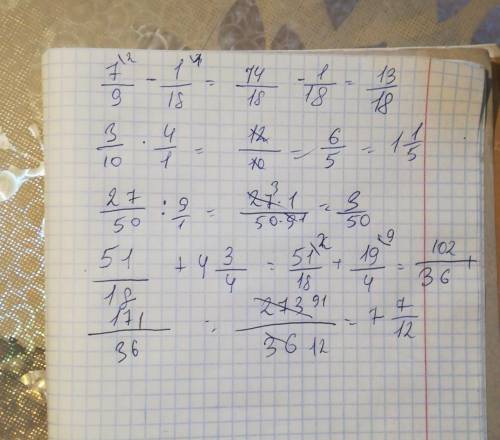 7/9 \2 - 1/18 \1 = 14/18 - 1/18 = 13/18
3/10 · 4/1 = 12/10 = 6/5 = 1 1/5
27/50 : 9/1 = 27 3 · 1/50 · 9 1 = 3/50
51/18 + 4 3/4 = 51/18 \2 + 19/4 \9 = 102/36 +
171/36 = 273 91/36 12 = 7 7/12